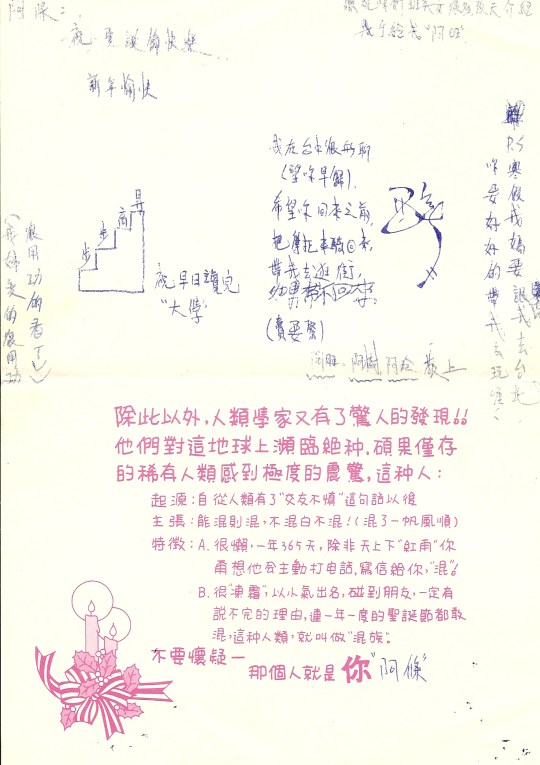 祝 聖誕節快樂
新年愉快
步
步
高
昇
祝早日讀完
"大學"
我在台中很無聊
(望你早歸).
希望你回來之前,
把摩托車騎回來,
帶我去逛街,
P.S 寒假我媽要讓我去台北,
你要好好的帶我去玩
很用功的看了
阿旺、阿樹、阿
敬上
除此以外,人類學家又有了驚人的發現!!
他們對這地球上瀕臨絕种,碩果僅存
的稀有人類感到極度的震驚,這种人:
起源:自從人類有了"交友不慎"這句話以後
主張:能混則混,不混白不混!(混了一帆風順)
特徵:A. 很懶,一年365天,除非天上下"紅雨"你
甭想他会主動打電話,寫信給你,"混"!
B. 很"凍霜",以小氣出名,碰到朋友,一定有
說不完的理由,連一年一度的聖誕節都敢
混,這种人類,就叫做"混族".
不要懷疑一
那個人就是你"阿條"